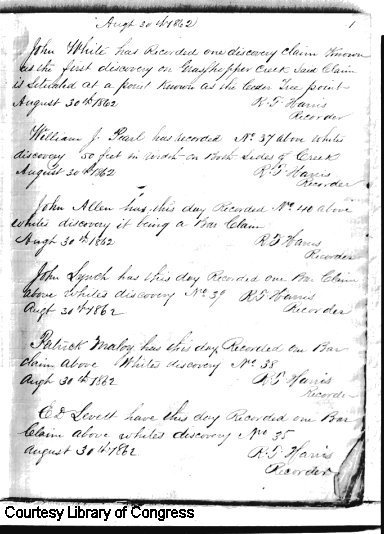 Augt 30th 1862 1
John White has Recorded one discovery claim Known
as the first discovery on Grasshopper Creek Said Claim
is Situated at a point Known as the Ceder Tree point
August 30th 1862 R T Harris
Recorder
William J. Pearl has recorded No 37 above whites
discovery 50 feet in width on Both Sides of Creek
August 30th 1862 R. T. Harris
Recorder
John Allen has this day Recorded No 40 above
whites discovery it being a Bar Claim
Augt 30th 1862 R T Harris
Recorder
John Lynch has this day Recorded one Bar Claim
above whites discovery No 39 R T Harris
Augt 31st 1862 Recorder
Patrick Maloy has this day Recorded one Bar
claim above Whites discovery No 38
Augt 31st 1862 R T Harris
Recorder
E D Levitt have this day Recorded one Bar
Claim above whites discovery No 35
august 30th 1862 R T Harris
Recorder
Courtesy Library of Congress